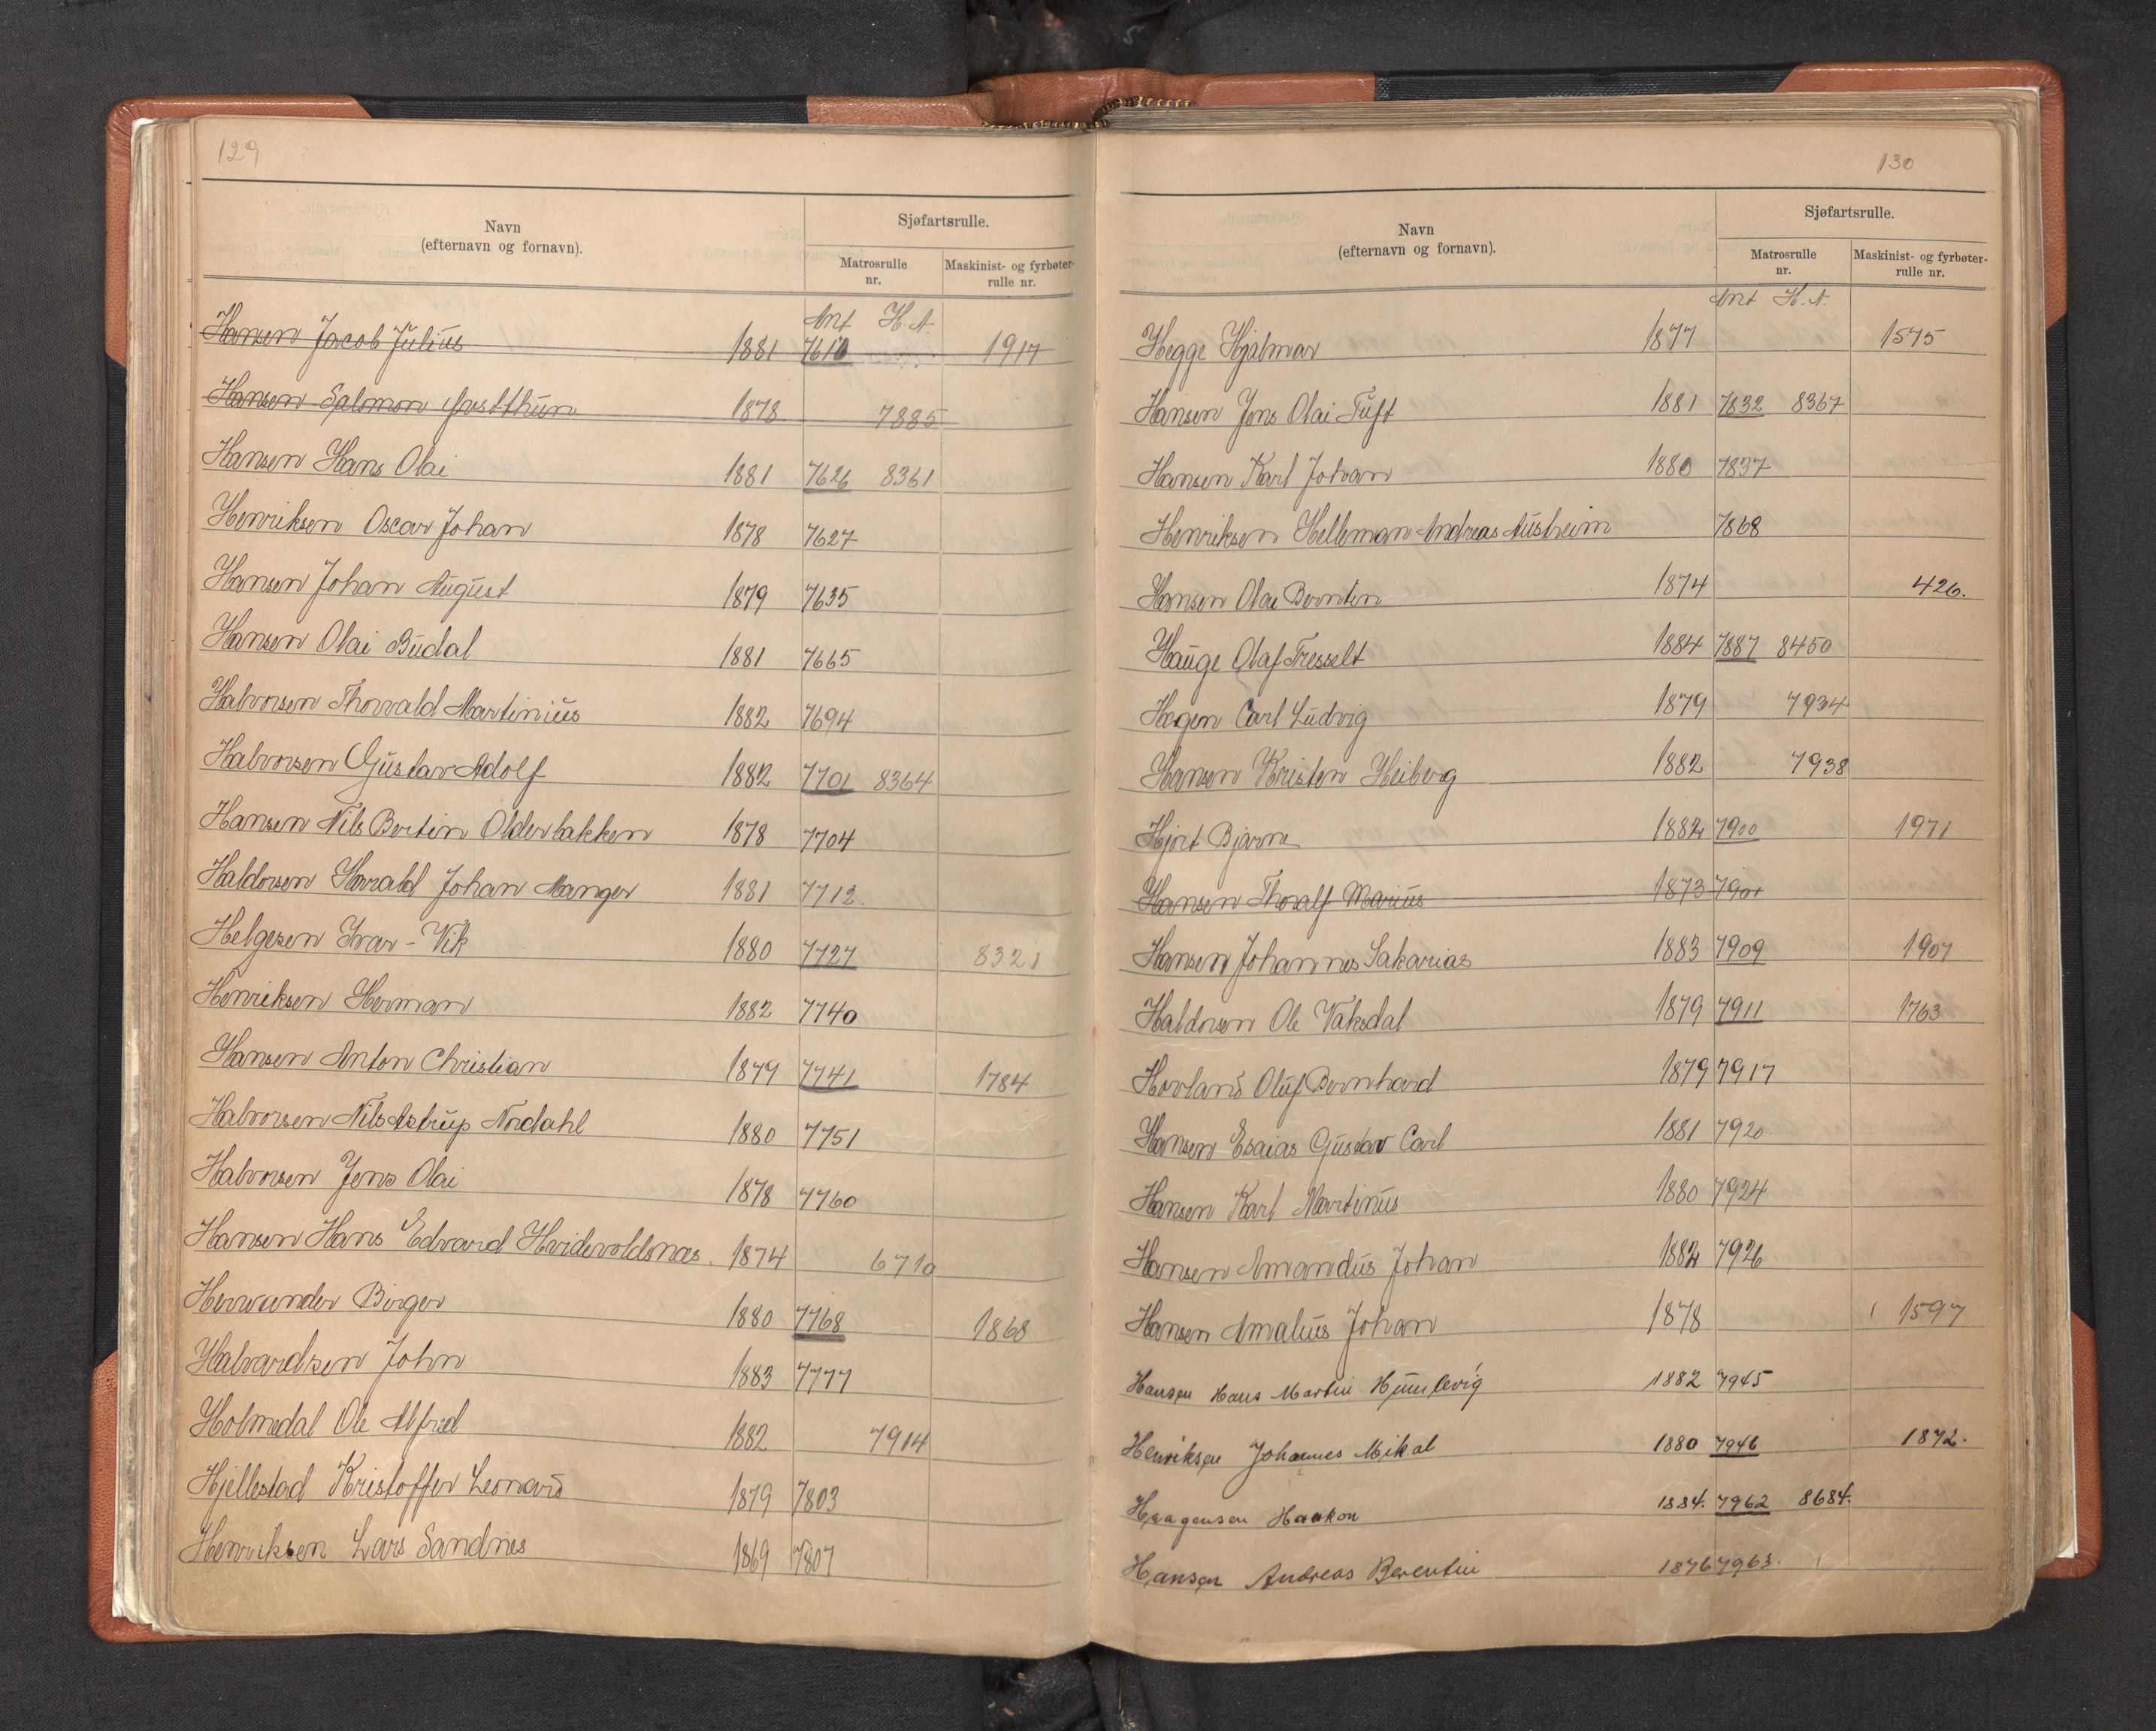 129
Navn
(efternavn og fornavn).
Sjøfartsrulle.
Matrosrulle
nr.
Maskinist- og fyrbøter-
rulle nr.
Ant H. A.
Hansen Jacob Julius 1881 7610 1917
Hansen Salomon 1878 7885
Hansen Hans Olai 1881 7626 8361
Henriksen Oscar Johan 1878 7627
Hansen Johan August 1879 7635
Hansen Olai Budal 1881 7665
Halvorsen Thorvald Martinius 1882 7694
Halvorsen Gustav Adolf 1882 7701 8364
Hansen Nils Bertin Olderbakken 1878 7704
Haldorsen Harald Johan Manger 1881 7712.
Helgesen Ivar - Vik 1880 7727 8321
Henriksen Herman 1882 7740
Hansen Anton Christian 1879 7741 1784
Halvorsen Nils Astrup Nordahl 1880 7751
Halvorsen Jens Olai 1878 7760
Hansen Hans Edvard Hvidevoldsnæs. 1874 6710
Herwander Birger 1880 7768 1868
Halvardsen John 1883 7777
Holmedal Ole Alfred 1882 7914
Hjellestad Kristoffer Leonard 1879 7803
Henriksen Lars Sandnes 1869 7807
130
Navn
(efternavn og fornavn).
Sjøfartsrulle.
Matrosrulle
nr.
Maskinist- og fyrbøter-
rulle nr.
Ant H. A.
Hegge Hjalmar 1877 1575
Hansen Jens Olai Tuft 1881 7832 8367
Hansen Karl Johan 1880 7837
Henriksen Helleman Andreas Austrheim 7868
Hansen Olai Berntin 1874 426.
Hauge Olaf Tresselt 1884 7887 8450
Hagen Carl Ludvig 1879 7934
Hansen Kristen Heiberg 1882 7938
Hjort Bjarne 1882 7900 1971
Hansen Thoralf Marius 1873 7901
Hansen Johannes Sakarias 1883 7909 1907
Haldorsen Ole Vaksdal 1879 7911 1763
Hovland Oluf Bernhard 1879 7917
Hansen Esaias Gustav Carl 1881 7920
Hansen Karl Martinus 1880 7924
Hansen Amandus Johan 1882 7926
Hansen Amalius Johan 1878 1597
Hansen Hans Martin 1882 7945
Henriksen Johannes Mikal 1880 7946 1872.
Haagensen Haakon 1884. 7962 8684.
Hansen Andreas Berentin 1876 7963.